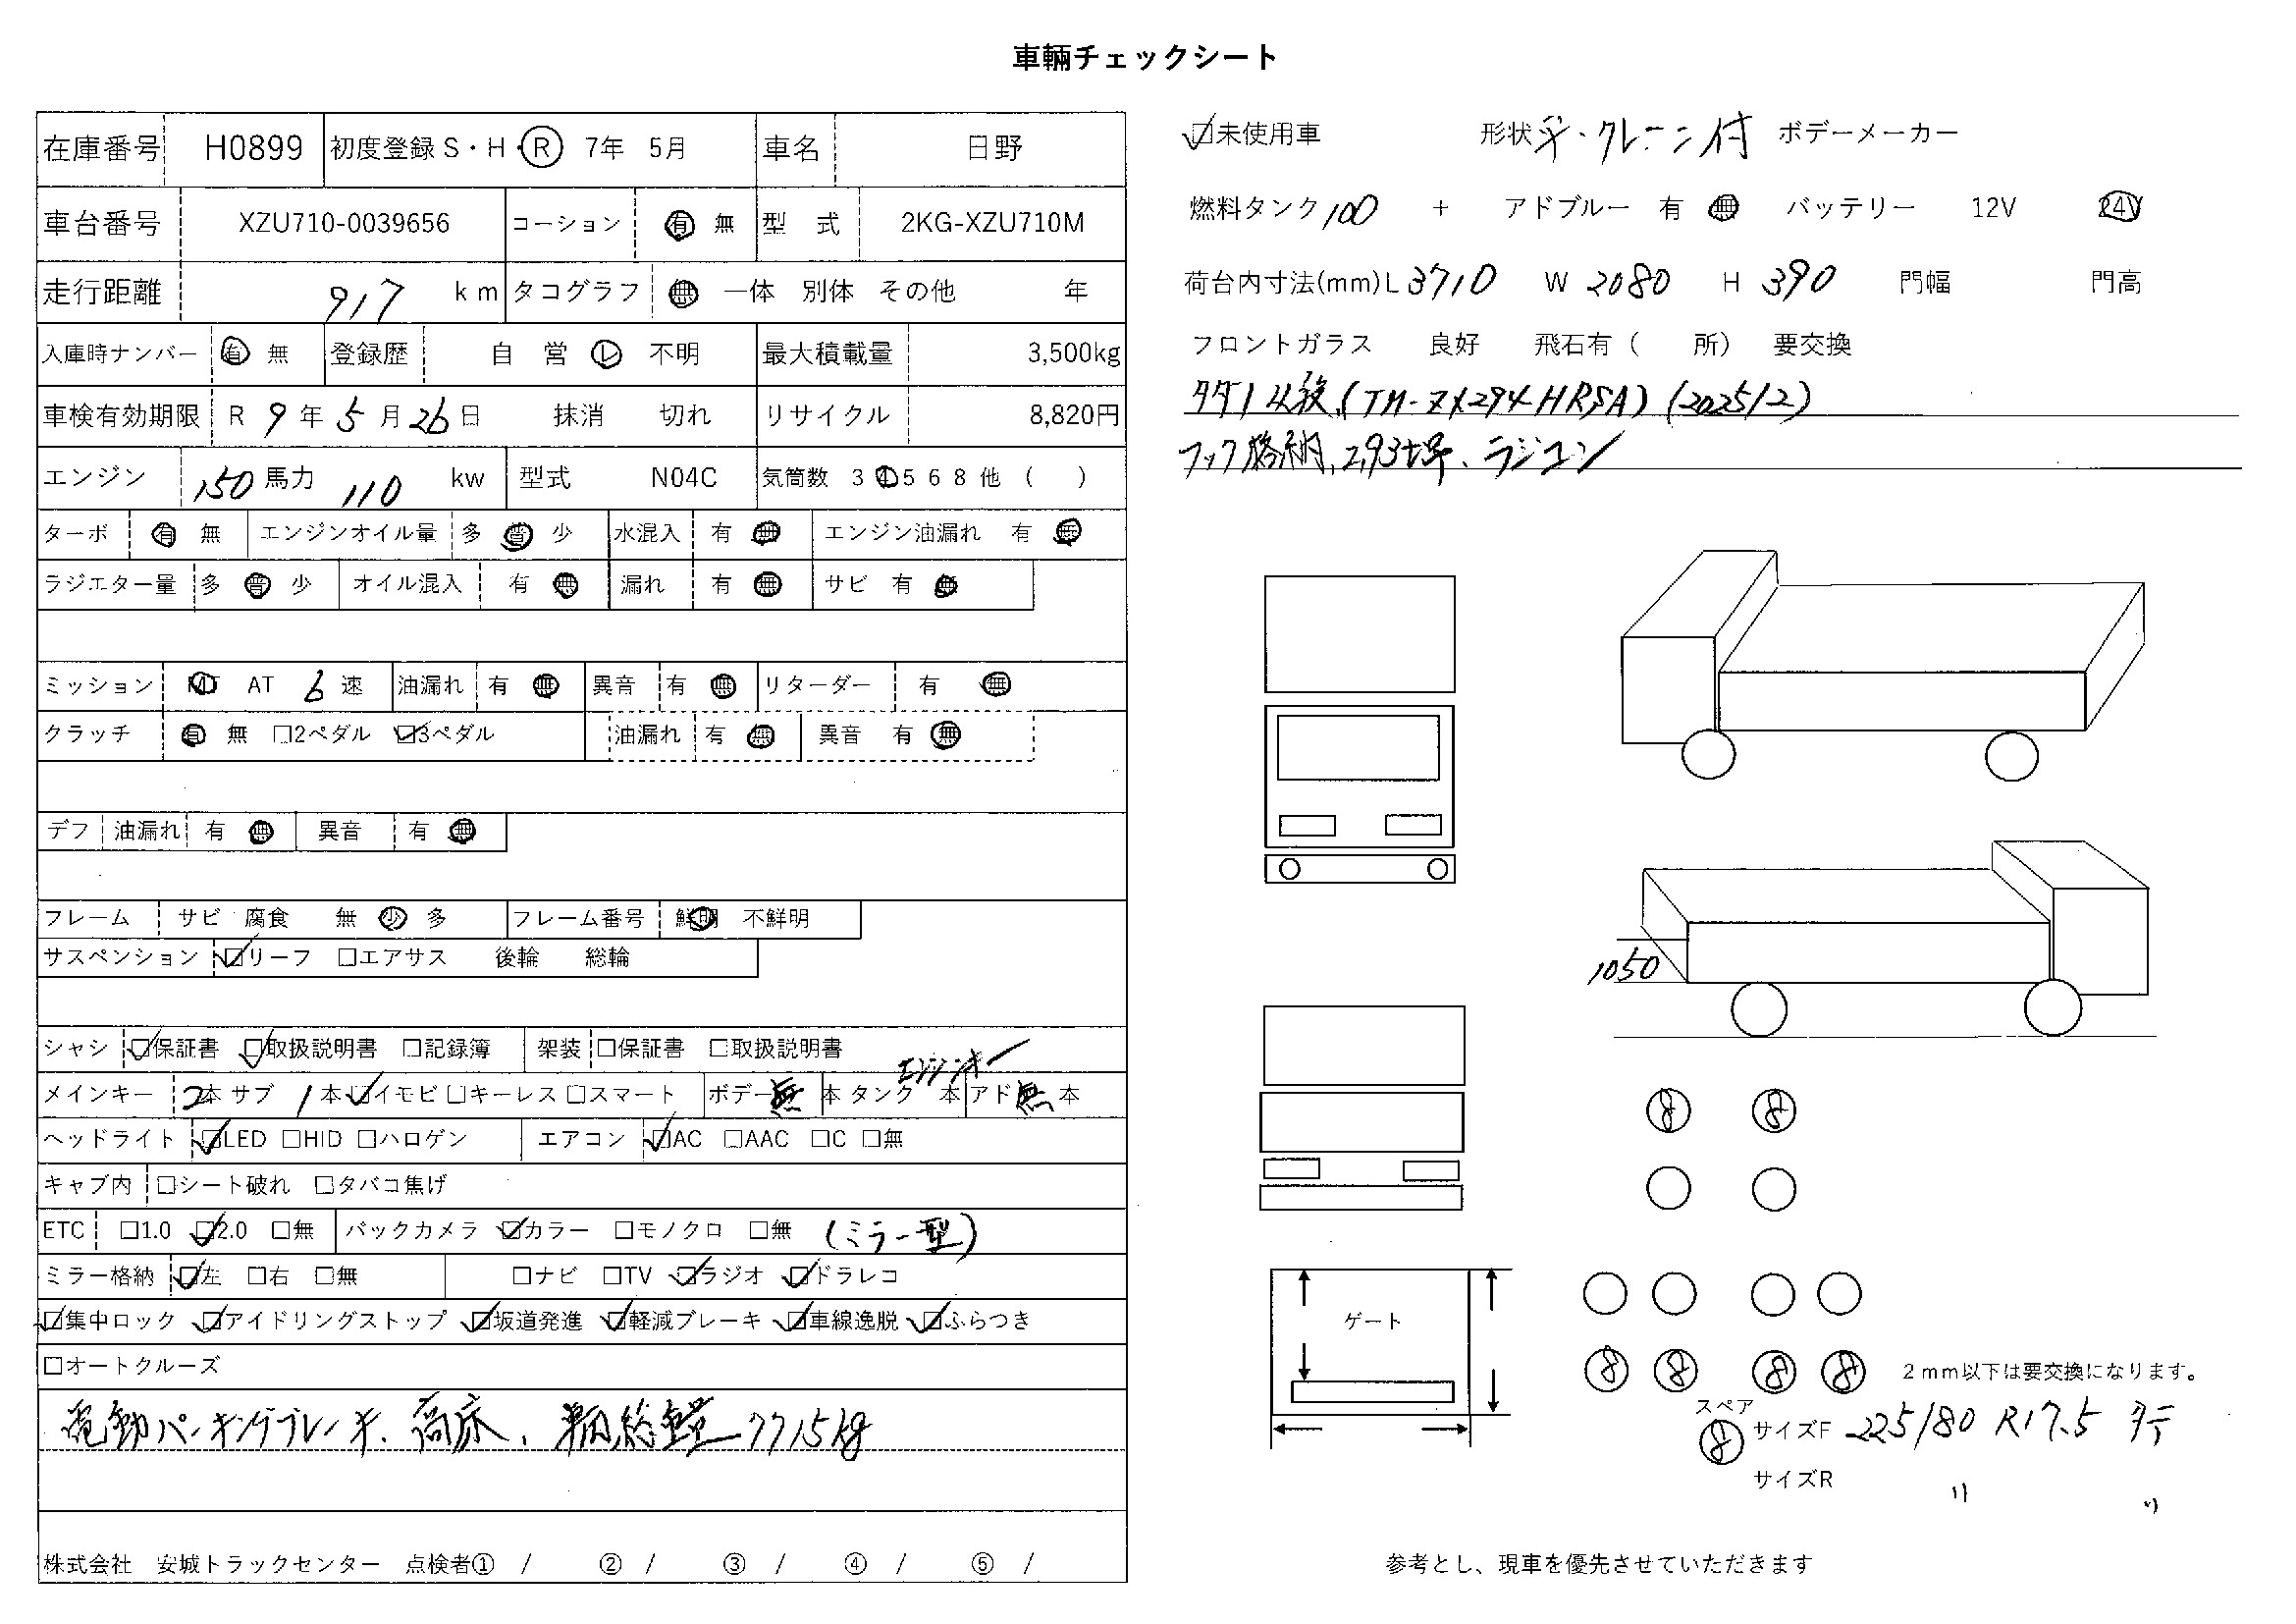 車輛チェックシート
在庫番号 H0899 初度登録 S・H・Ⓡ 7年 5月 車名 日野
車台番号 XZU710-0039656 コーション 有 無 型 式 2KG-XZU710M
走行距離 917 km タコグラフ 無 一体 別体 その他 年
入庫時ナンバー 有 無 登録歴 自 営 レ 不明 最大積載量 3,500kg
車検有効期限 R 9年 5月 26日 抹消 切れ リサイクル 8,820円
エンジン 150馬力 110 kw 型式 N04C 気筒数 3 4 5 6 8 他 ( )
ターボ 有 無 エンジンオイル量 多 普 少 水混入 有 無 エンジン油漏れ 有 無
ラジエター量 多 普 少 オイル混入 有 無 漏れ 有 無 サビ 有 無
ミッション MT AT 6速 油漏れ 有 無 異音 有 無 リターダー 有 無
クラッチ 有 無 □2ペダル ☑3ペダル 油漏れ 有 無 異音 有 無
デフ 油漏れ 有 無 異音 有 無
フレーム サビ 腐食 無 少 多 フレーム番号 鮮明 不鮮明
サスペンション ☑リーフ □エアサス 後輪 総輪
シャシ ☑保証書 ☑取扱説明書 □記録簿 架装 □保証書 □取扱説明書
エンジンキー
メインキー 2本 サブ 1本 ☑イモビ □キーレス □スマート ボデー 無 本 タンク 本 アド 無 本
ヘッドライト ☑LED □HID □ハロゲン エアコン ☑AC □AAC □C □無
キャブ内 □シート破れ □タバコ焦げ
ETC □1.0 ☑2.0 □無 バックカメラ ☑カラー □モノクロ □無 (ミラー型)
ミラー格納 ☑左 □右 □無 □ナビ □TV ☑ラジオ ☑ドラレコ
☑集中ロック ☑アイドリングストップ ☑坂道発進 ☑軽減ブレーキ ☑車線逸脱 ☑ふらつき
□オートクルーズ
電動パーキングブレーキ、高床、車輌総重量7715kg
株式会社 安城トラックセンター 点検者① / ② / ③ / ④ / ⑤ /
☑未使用車 形状 平・クレーン付 ボデーメーカー
燃料タンク 100 + アドブルー 有 無 バッテリー 12V 24V
荷台内寸法(mm) L 3710 W 2080 H 390 門幅 門高
フロントガラス 良好 飛石有 ( 所) 要交換
タダノ4段、(TM-ZX294HRSA) (2025/2)
フック格納、2.93t吊、ラジコン
1050
8 8
ゲート
8 8 8 8 2mm以下は要交換になります。
スペア
8 サイズF 225/80 R17.5
サイズR 〃 〃
参考とし、現車を優先させていただきます